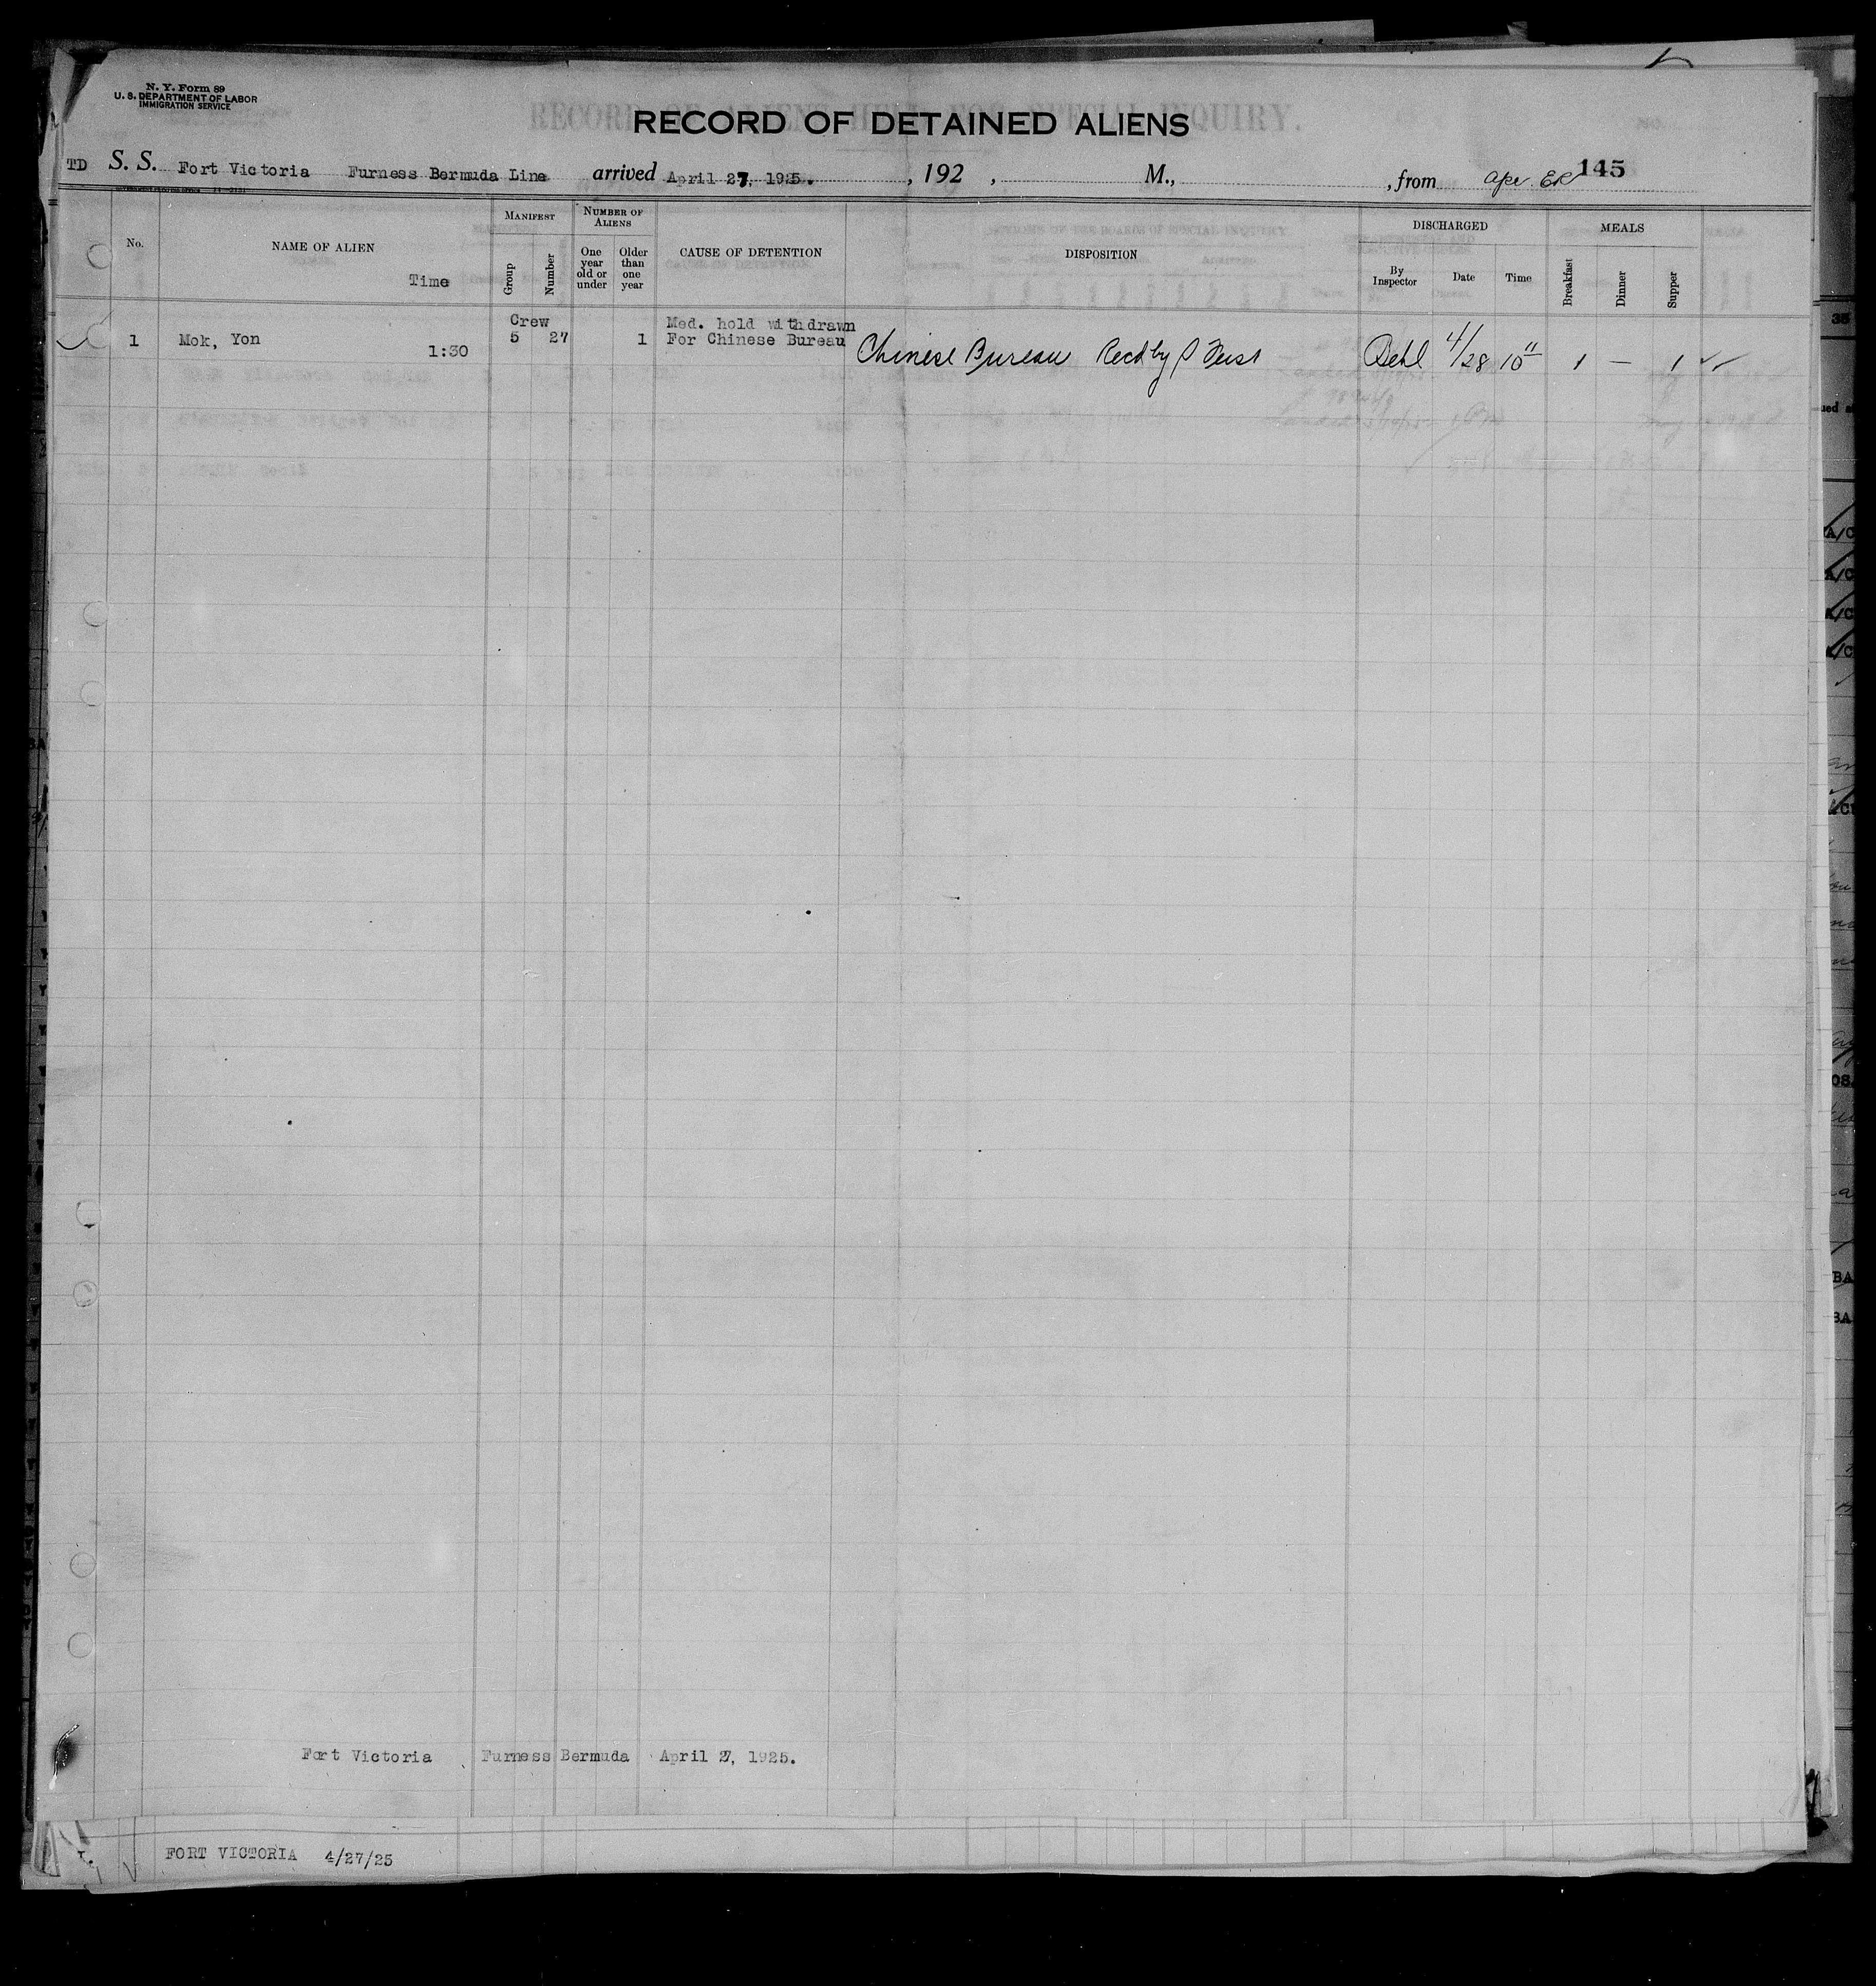 N. Y. Form 89
U. S. DEPARTMENT OF LABOR
IMMIGRATION SERVICE
RECORD OF DETAINED ALIENS
TD S. S. Fort Victoria Furness Bermuda Line arrived April 27, 1925. , 192 , M., , from 145
No. NAME OF ALIEN Time MANIFEST Group Number NUMBER OF ALIENS One year old or under Older than one year CAUSE OF DETENTION DISPOSITION DISCHARGED By Inspector Date Time MEALS Breakfast Dinner Supper
Crew Med. hold withdrawn
1 Mok, Yon 1:30 5 27 1 For Chinese Bureau Chinese Bureau Recd by 4/28 10 1 — 1
Fort Victoria Furness Bermuda April 27, 1925.
FORT VICTORIA 4/27/25